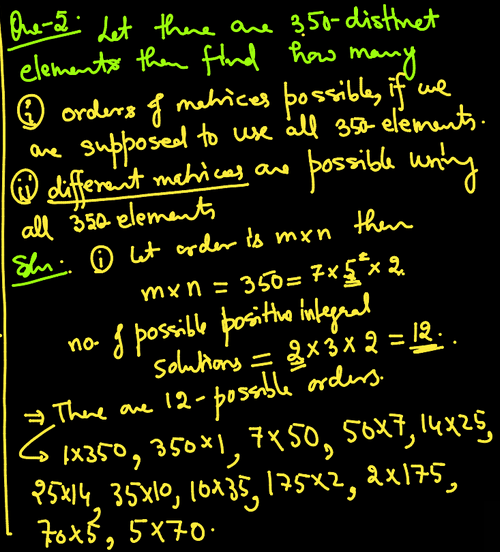 Que-2: Let there are 350-distinct
elements then find how many
(i) orders of matrices possible, if we
are supposed to use all 350-elements.
(ii) different matrices are possible using
all 350-elements
Soln: (i) Let order is m×n then
m×n = 350 = 7×5²×2
no. of possible positive integral
solutions = 2×3×2 = 12.
⇒ There are 12-possible orders.
↳ 1×350, 350×1, 7×50, 50×7, 14×25,
25×14, 35×10, 10×35, 175×2, 2×175,
70×5, 5×70.